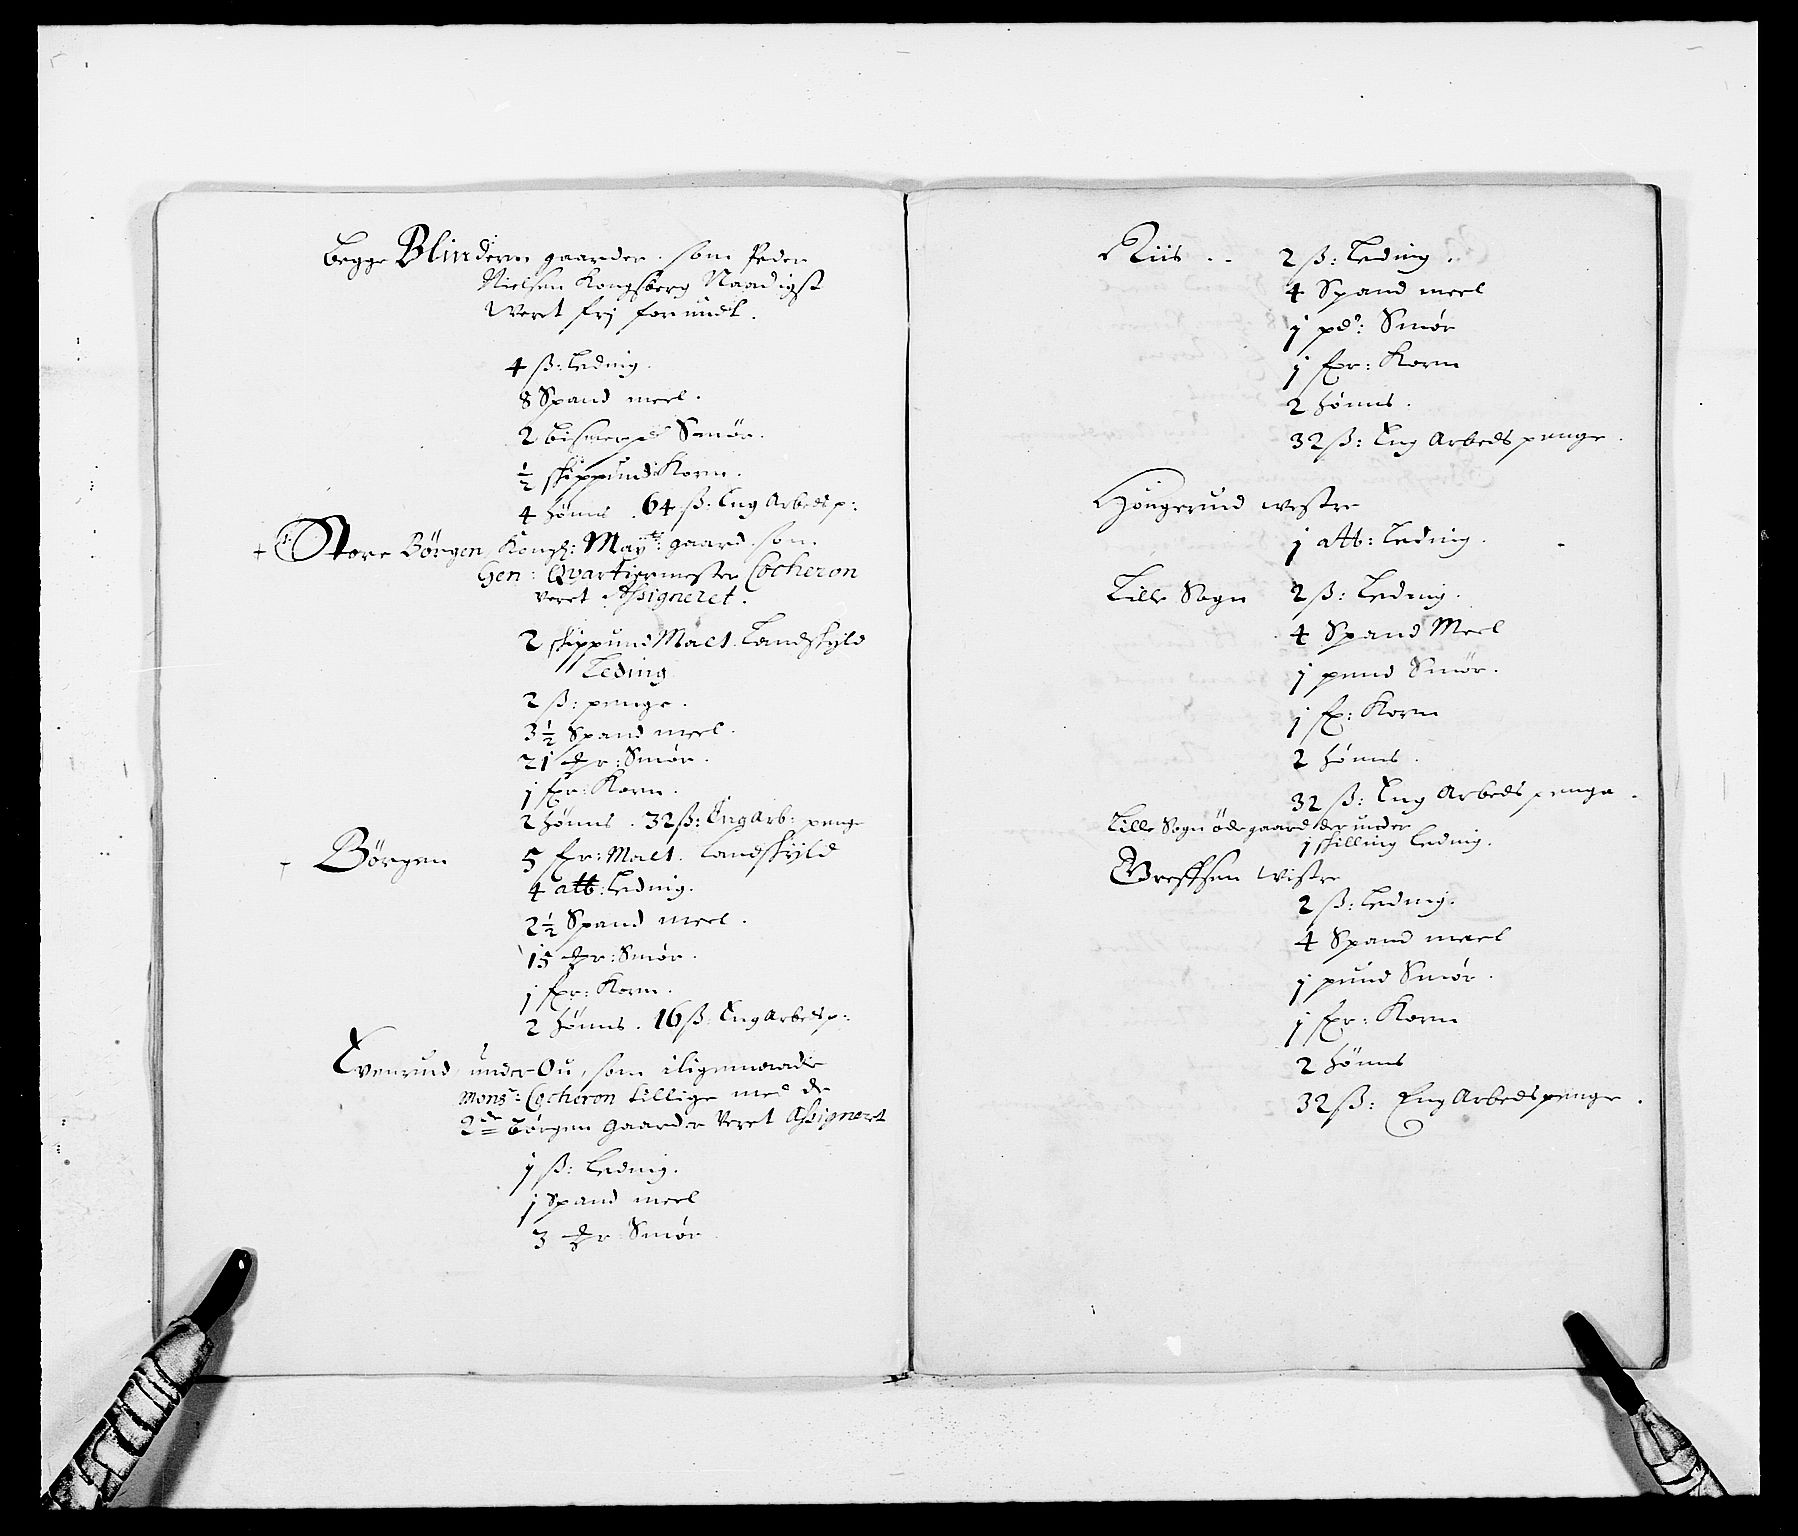 Begge Blindern gaarder. som Peder
Nielsen Kongsberg Naadigst
Weret frj forundt.
4 ß: Leding.
8 Spand meel.
2 bismerpd Smør.
½ skippund Korn.
4 hönns. 64 ß: Eng Arbeds p:
+ Store Börgen Kongl: Mayts: gaard som
Gen: Qvartiermester Cocheron
veret Assigneret.
2 skippund Malt. Landskyld
Leding
2 ß: penge.
3½ Spand meel.
21 mr: Smør.
1 fr: Korn.
2 hönns. 32 ß: Eng Arb: penge
+ Börgen 5 fr: Malt. Landskyld
4 att: Leding.
2½ Spand meel.
15 mr: Smør.
1 fr: Korn.
2 hönns. 16 ß: Eng Arbeds p:
Evenrud under Ou, som iligemaade
Monsr: Cocheron tillige med de
2de Börgen Gaarder veret Assigneret
1 ß: Leding.
1 Spand meel
3 mr Smør
Riis .. 2 ß: Leding.
4 Spand meel
1 pd: Smør
1 fr: Korn
2 hönns.
32 ß: Eng Arbeds penge.
Hougerud westre
1 att: Leding.
Lille Sogn 2 ß: Leding.
4 Spand Meel
1 pund Smör.
1 f: Korn
2 hönns.
32 ß: Eng Arbeds penge.
Lille Sogn ödegaard der under
1 skilling Leding.
Greffsen wistre
2 ß: Leding.
4 Spand meel
1 pund Smør.
1 fr: Korn
2 hönns
32 ß: Eng Arbeds penge.